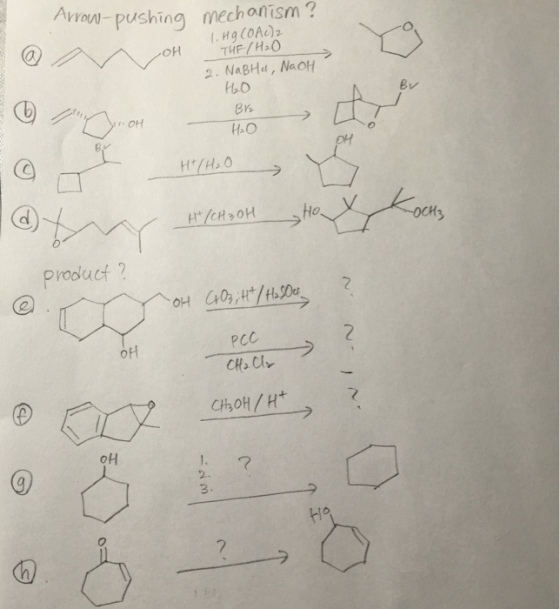 Arrow-pushing mechanism?
a
OH
1. Hg(OAc)2
THF/H2O
2. NaBH4, NaOH
H2O
O
b
OH
Br2
H2O
Br
O
c
Br
H+/H2O
OH
d
O
H+/CH3OH
HO
OCH3
product?
e
OH
OH
CrO3, H+/H2SO4
?
PCC
CH2Cl2
?
f
O
CH3OH/H+
?
g
OH
1. ?
2.
3.
h
O
?
HO